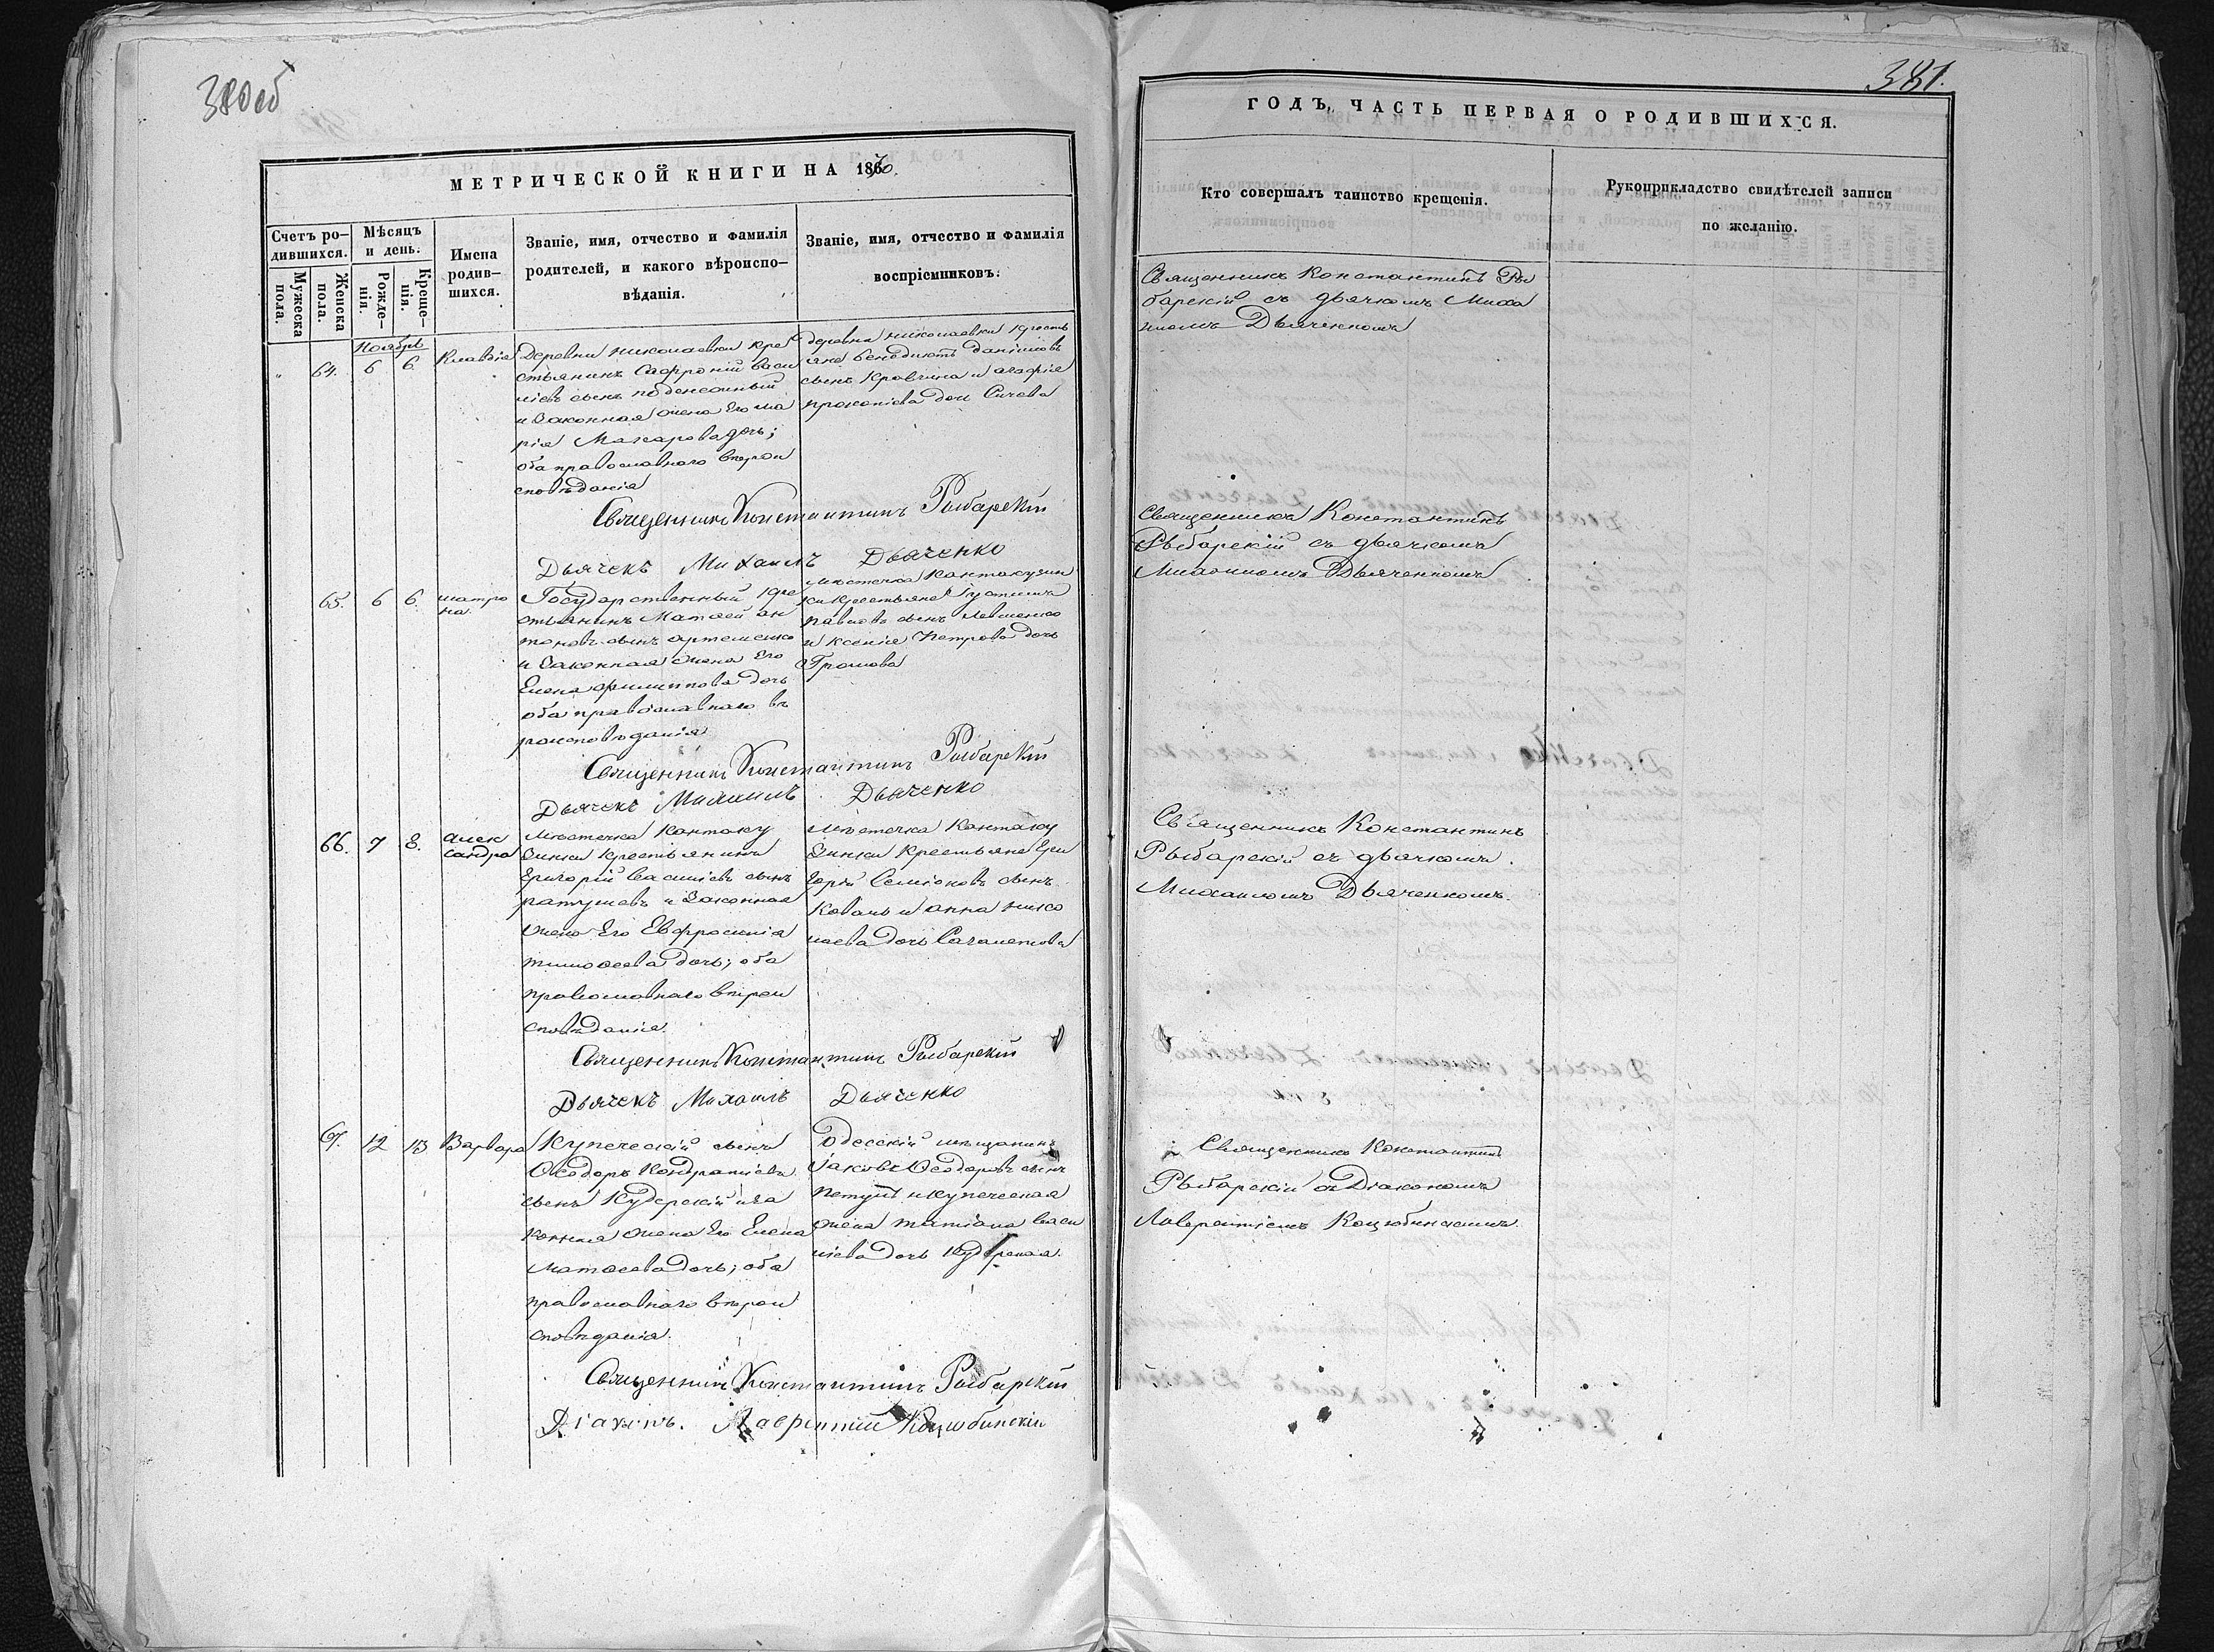 380об
МЕТРИЧЕСКОЙ КНИГИ НА 1870.
Счетъ ро-
дившихся.
Мужеска
пола.
Женска
пола.
Мѣсяцъ
и день.
Рожде-
нія.
Креще-
нія.
Имена
родив-
шихся.
Званіе, имя, отчество и фамилія
родителей, и какого вѣроиспо-
вѣданія.
Званіе, имя, отчество и фамилія
воспріемниковъ.
Ноябрь
64. 6 6 Клавдія
Деревни Николаевки кре
стьянинъ Сафроній Васи
ліевъ сынъ
и законная жена Его Ма
рія Макарова дочь;
оба православнаго вѣрои
сповѣданія
деревни Николаевки кресть
яне Бенедиктъ Даніиловъ
сынъ Кравчина и Агафія
Прокопіева дочь Сичева
Священникъ Константинъ Рыбарскій
Дьячекъ Михаилъ Дьяченко
65. 6 6. Матро
на.
Государственный кре
стьянинъ Матѳей Ан
тоновъ сынъ Артеменко
и законная жена Его
Елена Филиппова дочь
оба православнаго вѣ
роисповѣданія
Мѣстечка Кантакузин
ки крестьяне Густинъ
Павловъ сынъ Левченко
и Ксенія Петрова дочь
Громова
Священникъ Константинъ Рыбарскій
Дьячекъ Михаилъ Дьяченко
66. 7 8. Алек
сандра
Мѣстечка Кантаку
зинки крестьянинъ
Григорій Василіевъ сынъ
Ратушевъ и законная
жена Его Евфросинія
Тимоѳеева дочь; оба
православнаго вѣрои
сповѣданія.
Мѣстечка Кантаку
зинки крестьяне Гри
горій Семіоновъ сынъ
Коваль и Анна Нико
лаева дочь
Священникъ Константинъ Рыбарскій
Дьячекъ Михаилъ Дьяченко
67. 12 13 Варвара
Купеческій сынъ
Ѳеодоръ Кондратіевъ
сынъ Кудерскій и за
конная жена Его Елена
Матѳеева дочь; оба
православнаго вѣрои
сповѣданія.
Одесскій мѣщанинъ
Іаковъ Ѳеодоровъ сынъ
Петуцъ и купеческая
жена Татіана Васи
ліева дочь Кудерская.
Священникъ Константинъ Рыбарскій
Діаконъ. Лаврентій Коцюбинскій
381.
ГОДЪ, ЧАСТЬ ПЕРВАЯ О РОДИВШИХСЯ.
Кто совершалъ таинство крещенія.
Рукоприкладство свидѣтелей записи
по желанію.
Священникъ Константинъ Ры
барскій съ дьячкомъ Миха
иломъ Дьяченкомъ
Священникъ Константинъ
Рыбарскій съ дьячкомъ
Михаиломъ Дьяченкомъ
Священникъ Константинъ
Рыбарскій съ дьячкомъ
Михаиломъ Дьяченкомъ.
Священникъ Константинъ
Рыбарскій съ Діакономъ
Лаврентіемъ Коцюбинскимъ